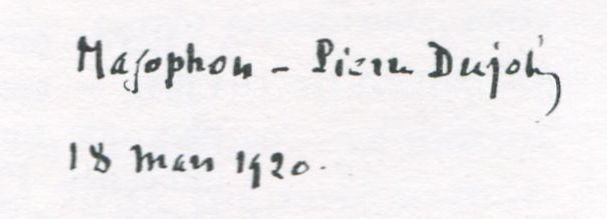 Magophon - Pierre Dujols
18 mars 1920.